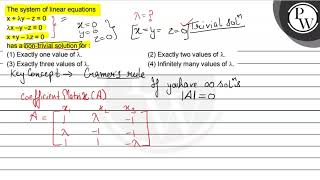 The system of linear equations
x + λy – z = 0
λx –y –z = 0
x +y –λz = 0
has a non-trivial solution for :
(1) Exactly one value of λ. (2) Exactly two values of λ.
(3) Exactly three values of λ. (4) Infinitely many values of λ.
λ = ?
x = 0
y = 0
z = 0
[x = y = z = 0] Trivial solⁿ
Key Concept → Cramer's rule
If you have ∞ solⁿs
|A| = 0
Coefficient Matrix (A)
x₁ x₂ x₃
A = [ 1 λ -1
λ -1 -1
1 1 -λ ]
PW